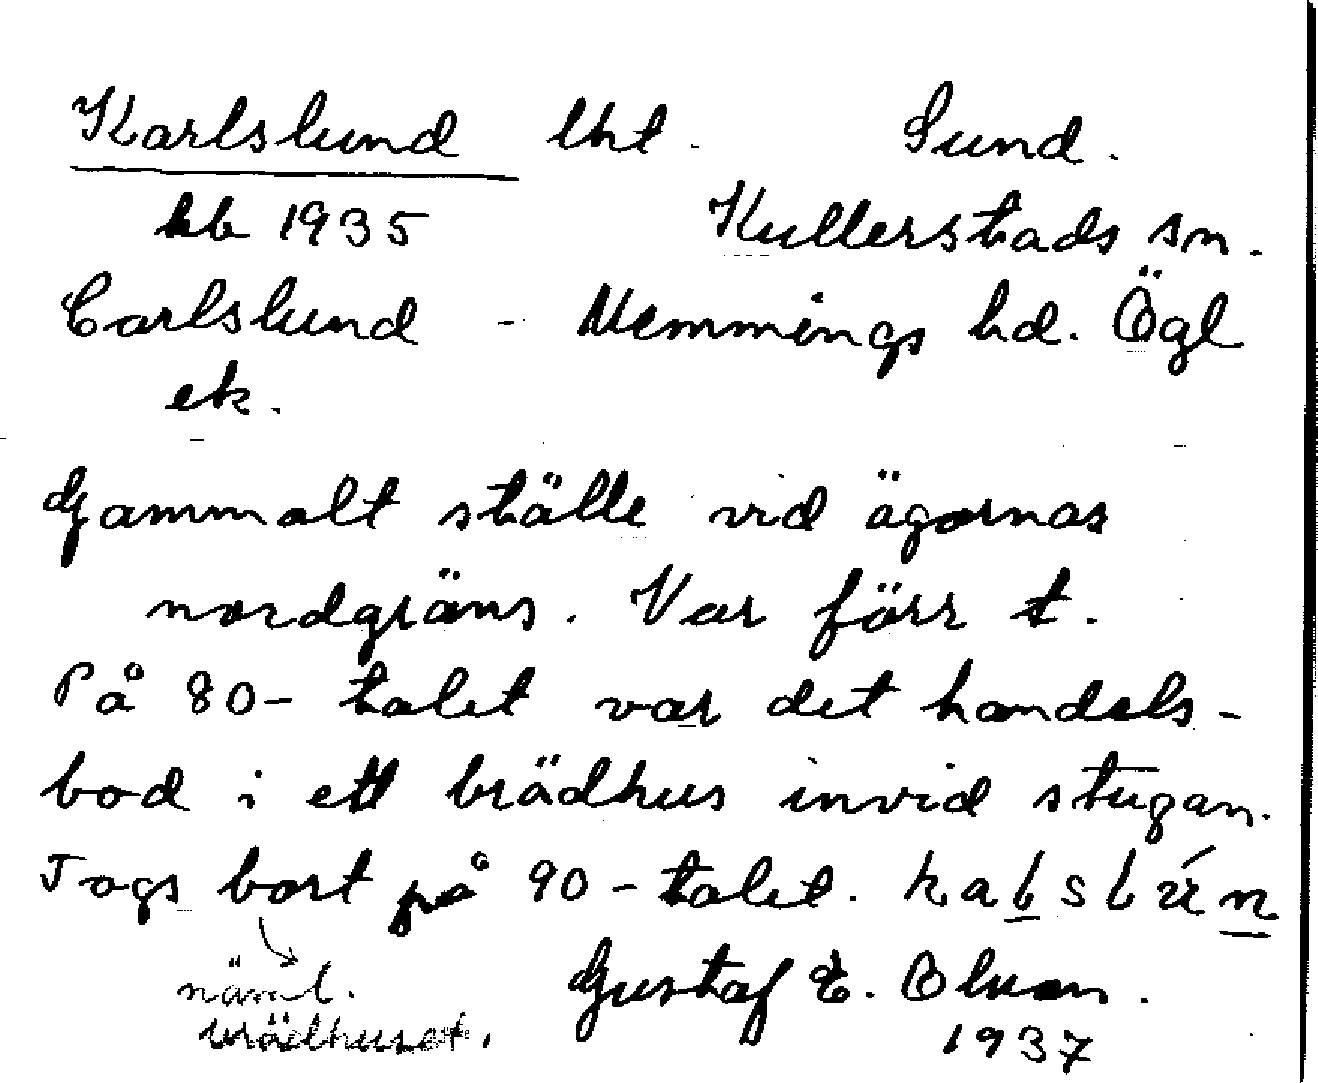 Karlslund lht. Sund.
kb 1935 Kullerstads sn.
Carlslund - Memmings hd. Ögl
ek.
Gammalt ställe vid ägornas
nordgräns. Var förr t.
På 80-talet var det handels-
bod i ett brädhus invid stugan.
Togs bort på 90-talet.
näml. Gustaf E. Olson.
brädhuset. 1937